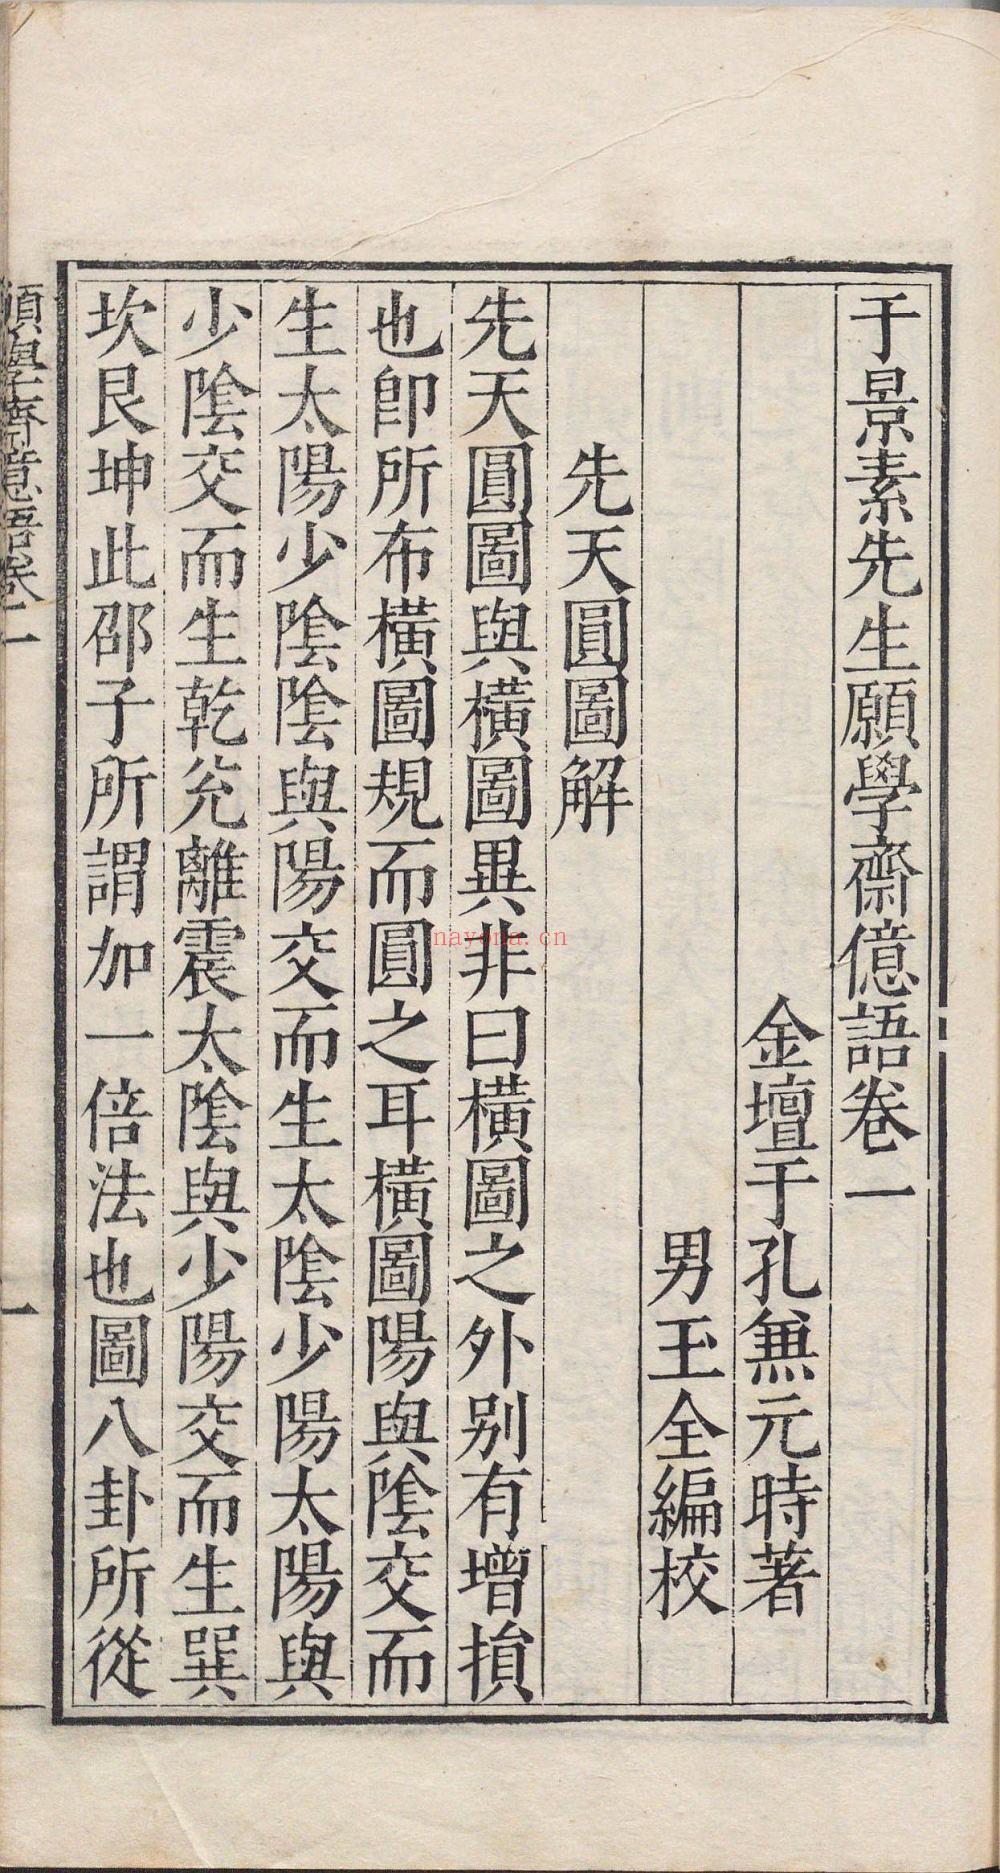 于景素先生願學齋億語卷一
金壇于孔兼元時著
男玉全編校
先天圓圖解
先天圓圖與橫圖異非曰橫圖之外別有增損
也即所布橫圖規而圓之耳橫圖陽與陰交而
生太陽少陰陰與陽交而生太陰少陽太陽與
少陰交而生乾兊離震太陰與少陽交而生巽
坎艮坤此邵子所謂加一倍法也圖八卦所從
願學齋億語卷一
一
nayona.cn